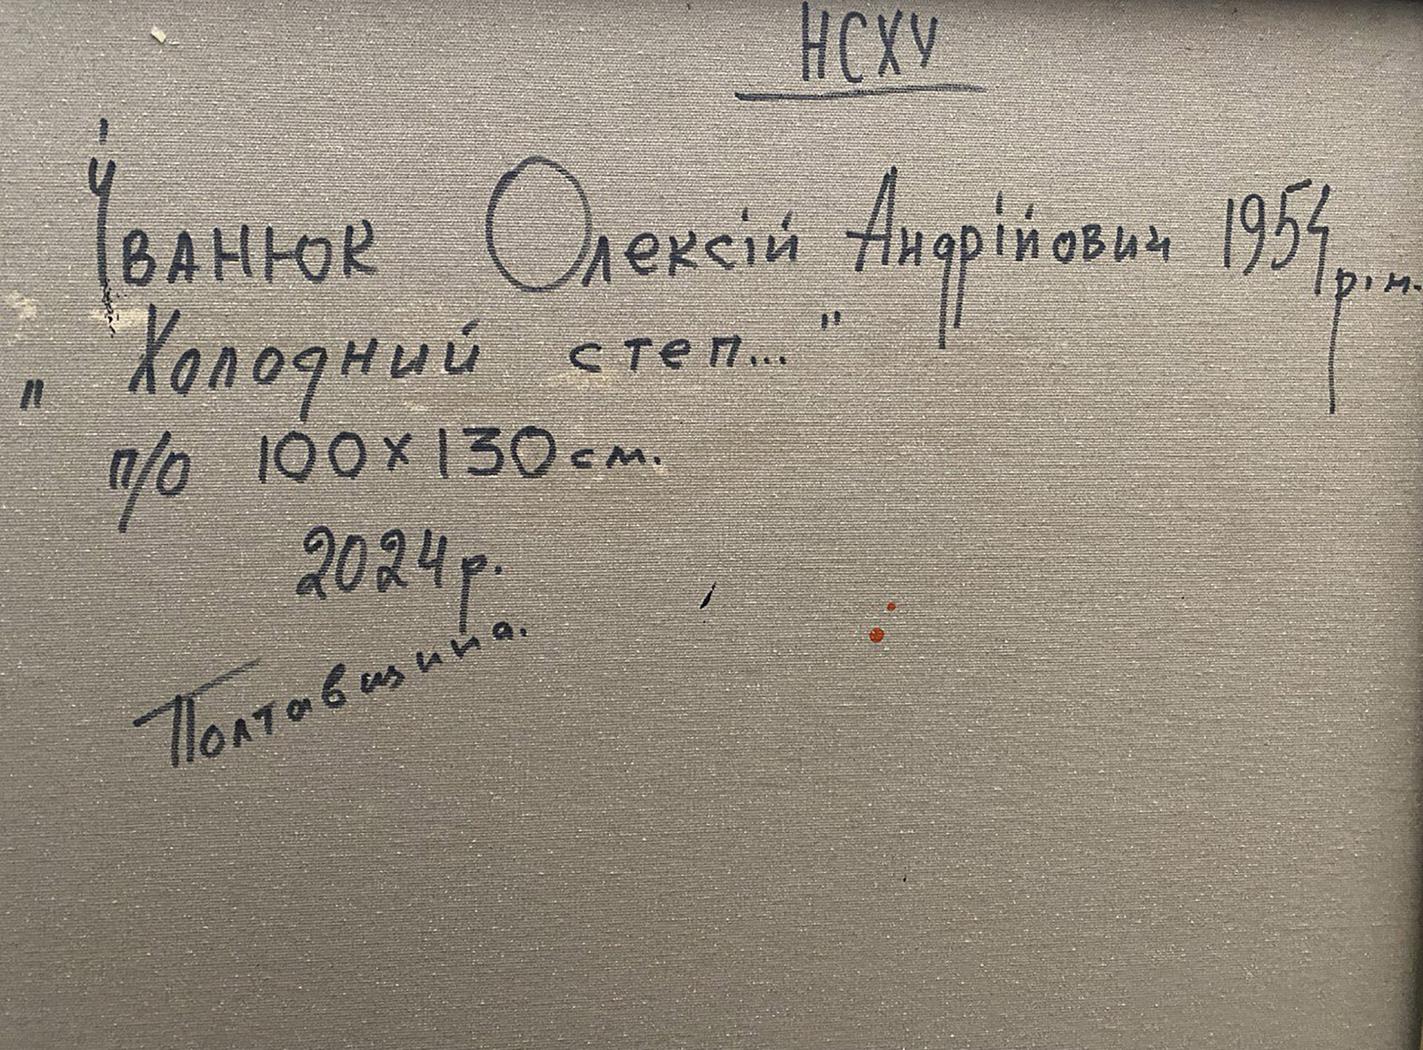 НСХУ
Іванюк Олексій Андрійович 1954 р.н.
„Холодний степ..."
п/о 100х130см.
2024р.
Полтавщина.